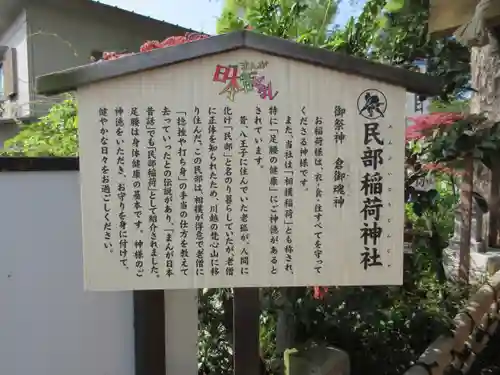 民部稲荷神社
みんぶいなりじんじゃ
御祭神 倉御魂神
お稲荷様は、衣・食・住すべてを守って
くださる神様です。
また、当社は「相撲稲荷」とも称され、
特に「足腰の健康」にご神徳があると
されています。
昔、八王子に住んでいた老狐が、人間に
化け「民部」と名のり暮らしていたが、老僧
に正体を知られたため、川越の梵心山に移
り住んだ。この民部は、相撲が得意で老僧に
「捻挫や打ち身」の手当の仕方を教えて
去っていったとの伝説があり、「まんが日本
昔話」でも「民部稲荷」として紹介されました。
足腰は身体の健康の基本です。神様のご
神徳をいただき、お守りを身に付けて、
健やかな日々をお過ごしください。